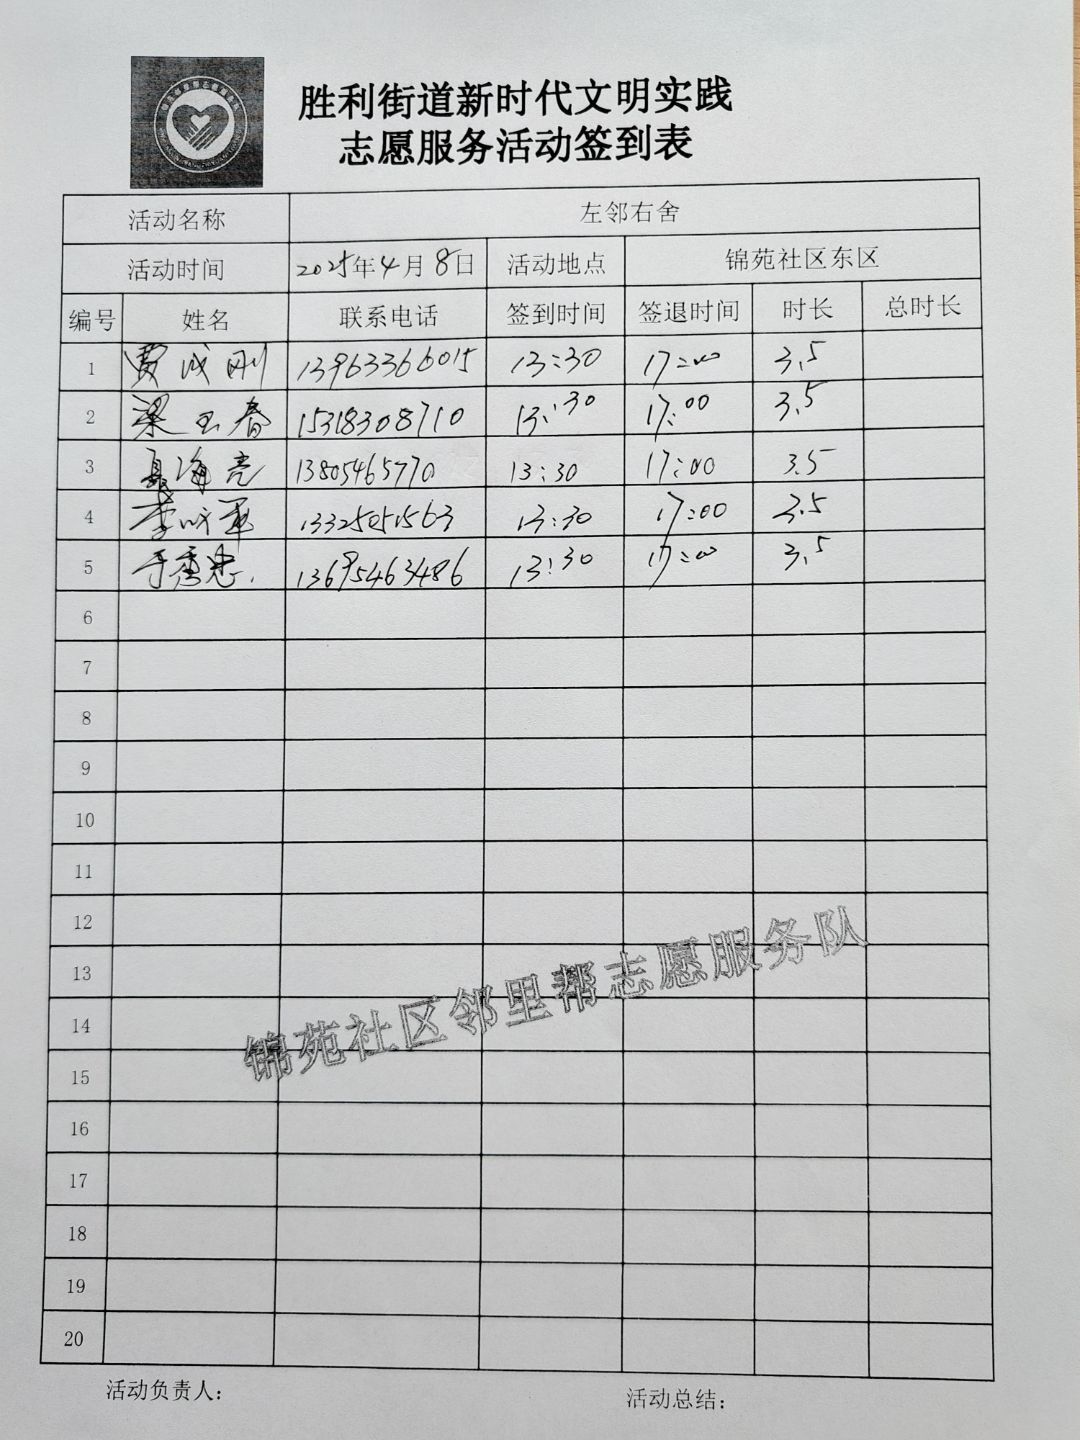 胜利街道新时代文明实践
志愿服务活动签到表
活动名称 左邻右舍
活动时间 2025年4月8日 活动地点 锦苑社区东区
编号 姓名 联系电话 签到时间 签退时间 时长 总时长
1 贾成刚 13963366015 13:30 17:00 3.5
2 梁玉春 15318308710 13:30 17:00 3.5
3 聂海亮 13805465770 13:30 17:00 3.5
4 李咏军 13325051563 13:30 17:00 3.5
5 于秀忠 13695463486 13:30 17:00 3.5
6
7
8
9
10
11
12
13
14
15
16
17
18
19
20
锦苑社区邻里帮志愿服务队
活动负责人: 活动总结: